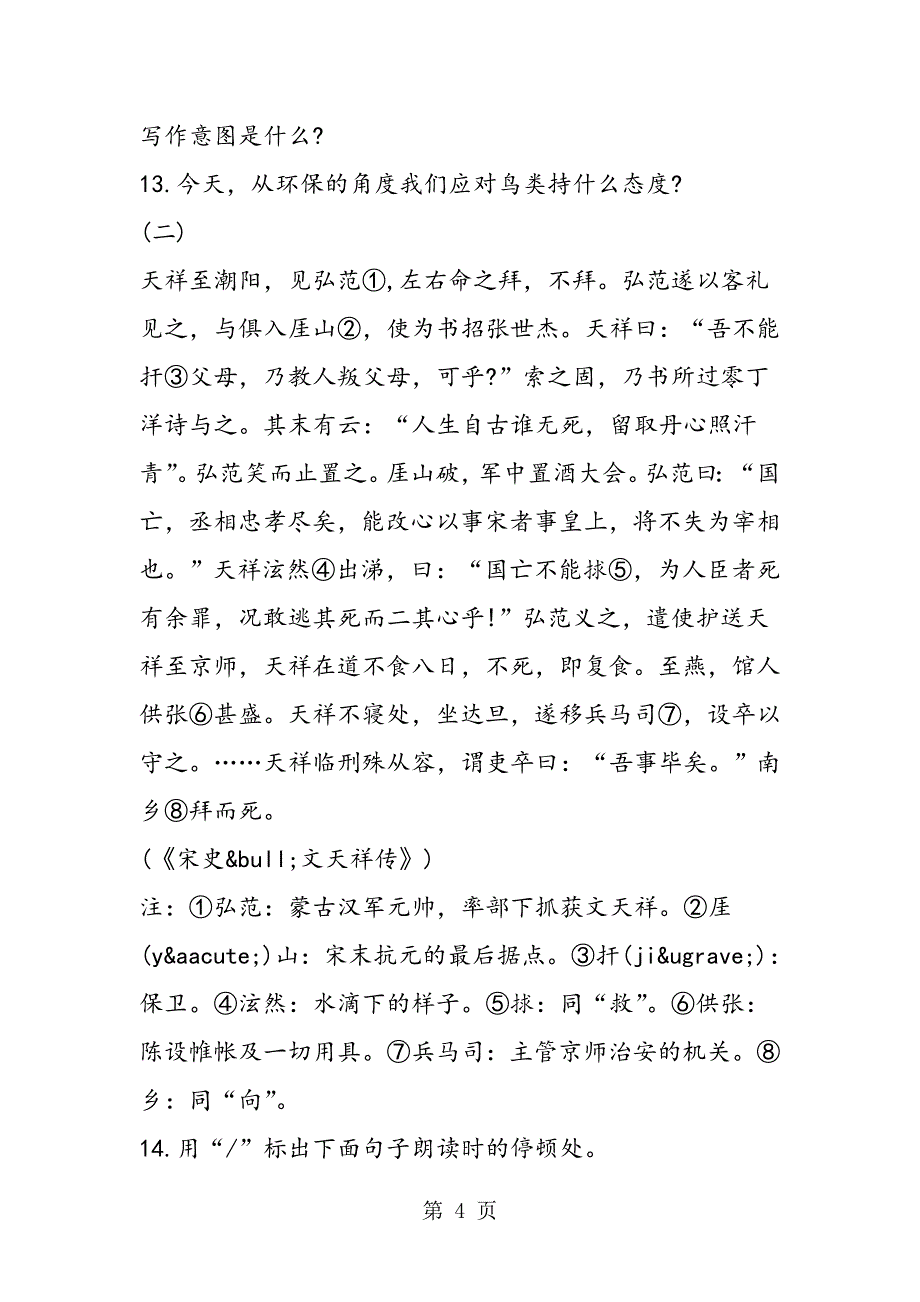 写作意图是什么?
13.今天，从环保的角度我们应对鸟类持什么态度?
(二)
天祥至潮阳，见弘范①,左右命之拜，不拜。弘范遂以客礼
见之，与俱入厓山②，使为书招张世杰。天祥曰：“吾不能
扞③父母，乃教人叛父母，可乎?”索之固，乃书所过零丁
洋诗与之。其末有云：“人生自古谁无死，留取丹心照汗
青”。弘范笑而止置之。厓山破，军中置酒大会。弘范曰：“国
亡，丞相忠孝尽矣，能改心以事宋者事皇上，将不失为宰相
也。”天祥泫然④出涕，曰：“国亡不能捄⑤，为人臣者死
有余罪，况敢逃其死而二其心乎!”弘范义之，遣使护送天
祥至京师，天祥在道不食八日，不死，即复食。至燕，馆人
供张⑥甚盛。天祥不寝处，坐达旦，遂移兵马司⑦，设卒以
守之。……天祥临刑殊从容，谓吏卒曰：“吾事毕矣。”南
乡⑧拜而死。
(《宋史&bull;文天祥传》)
注：①弘范：蒙古汉军元帅，率部下抓获文天祥。②厓
(y&aacute;)山：宋末抗元的最后据点。③扞(ji&ugrave;)：
保卫。④泫然：水滴下的样子。⑤捄：同“救”。⑥供张：
陈设帷帐及一切用具。⑦兵马司：主管京师治安的机关。⑧
乡：同“向”。
14.用“/”标出下面句子朗读时的停顿处。
第 4 页